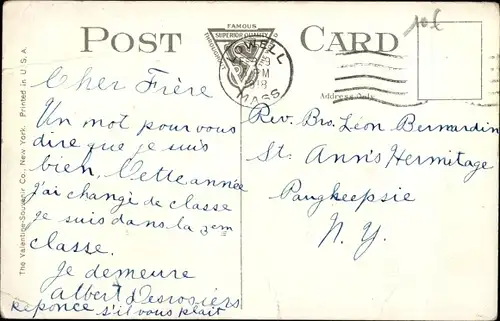 POST CARD
FAMOUS
SUPERIOR QUALITY
THROUGHOUT
LOWELL
MASS
10¢
Address Only
The Valentine-Souvenir Co., New York. Printed in U.S.A.
Cher Frère
Un mot pour vous
dire que je suis
bien. Cette année
j'ai changé de classe
je suis dans la 3em
classe.
Je demeure
Albert Desrosiers
Reponce s'il vous plait
Rev. Bro. Léon Bernardin
St. Ann's Hermitage
Paugkeepsie
N. Y.